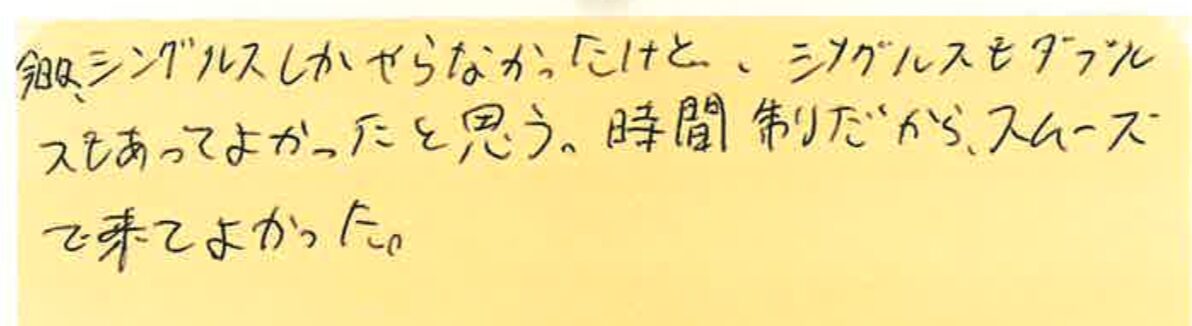 今回は、シングルスしかやらなかったけど、シングルスもダブル
スもあってよかったと思う。時間制だから、スムーズ
で来てよかった。